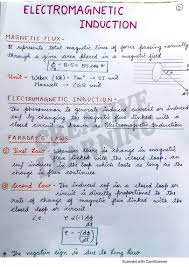 ELECTROMAGNETIC
INDUCTION
MAGNETIC FLUX -
It represents total magnetic lines of force passing normally
through a given area placed in a magnetic field
Unit - Weber (Wb) / Tm² → SI unit
Maxwell → CGS unit
ELECTROMAGNETIC INDUCTION
The phenomenon to generate induced current or induced
emf by changing the magnetic flux linked with a
closed circuit is known as electromagnetic induction
FARADAY LAWS
① First Law - Whenever there is change in
magnetic flux linked with the closed loop, an
emf induces in the loop which lasts as long as the
change in flux continues
② Second Law - The induced emf in a closed loop or
circuit is directly proportional to the
rate of change of magnetic flux linked with the
closed circuit
* The negative sign is due to Lenz law
Scanned with CamScanner